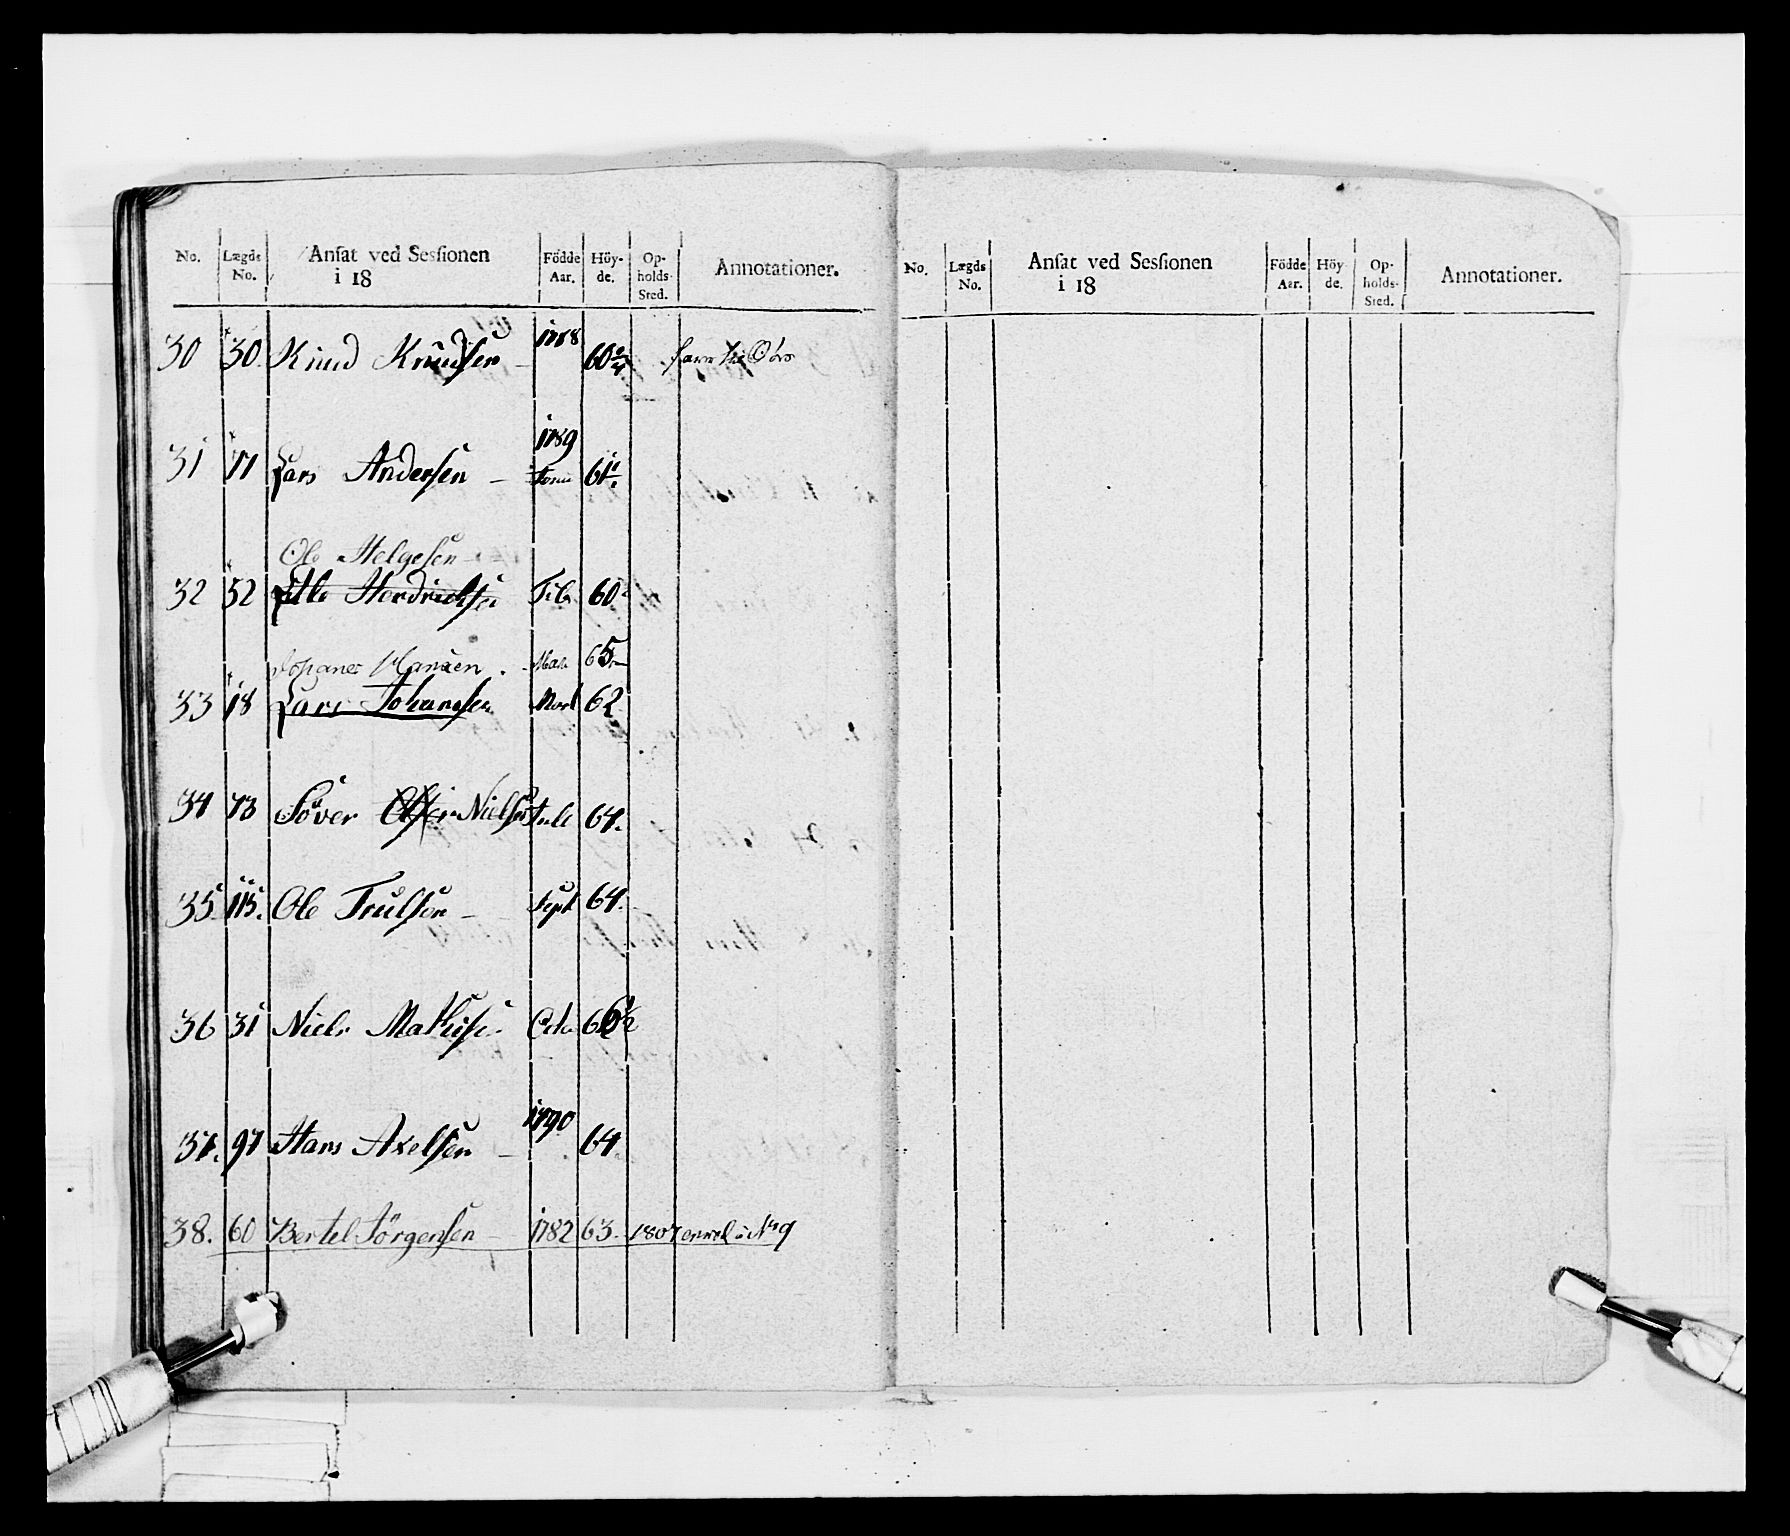 No. Lægds No. Ansat ved Sessionen i 18 Födde Aar. Höy-de. Op-holds-Sted. Annotationer.
30 30. Knud Knudsen – 1788 60 3/4
31 11 Lars Andersen – 1789 61
Ole Helgesen
32 52 Hendrichsen Feb 60
Johanes Hansen . Mar 65
33 18 Lars Johansen Mart 62
34 73 Söver Nielsen 64.
35. 115. Ole Trulsen – Sept 64.
36 31 Niels Mathise
37. 97 Hans Axelsen – 1790 64.
38. 60 Bertel Jörgensen – 1782 63. 1807 No 9
No. Lægds No. Ansat ved Sessionen i 18 Födde Aar. Höy-de. Op-holds-Sted. Annotationer.